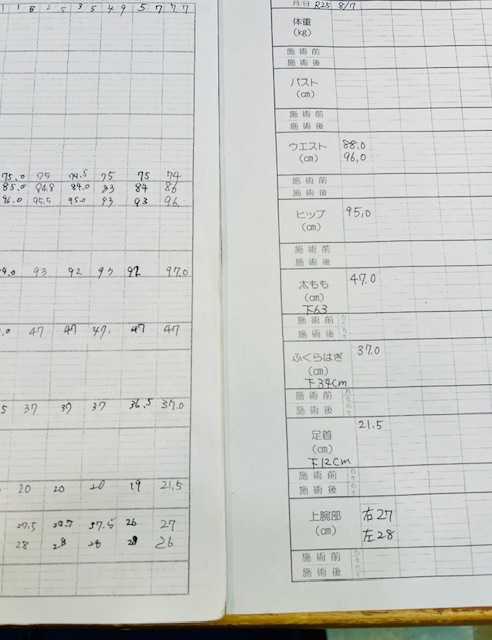 75.0 75 74.5 75 75 74
85.0 84.8 84.0 83 84 86
96.0 95.5 95.0 93 93 96
93 92 93 92 97.0
47 47 47 47 47
37 37 37 36.5 37.0
20 20 20 19 21.5
27.5 26 27
28 28 28 28 26
月日 R25 8/7
体重
(kg)
施術前
施術後
バスト
(cm)
施術前
施術後
ウエスト 88.0
(cm) 96.0
施術前
施術後
ヒップ 95.0
(cm)
施術前
施術後
太もも 47.0
(cm)
下63
施術前
施術後
ふくらはぎ 37.0
(cm)
下34cm
施術前
施術後
足首 21.5
(cm)
下12cm
施術前
施術後
上腕部 右27
(cm) 左28
施術前
施術後